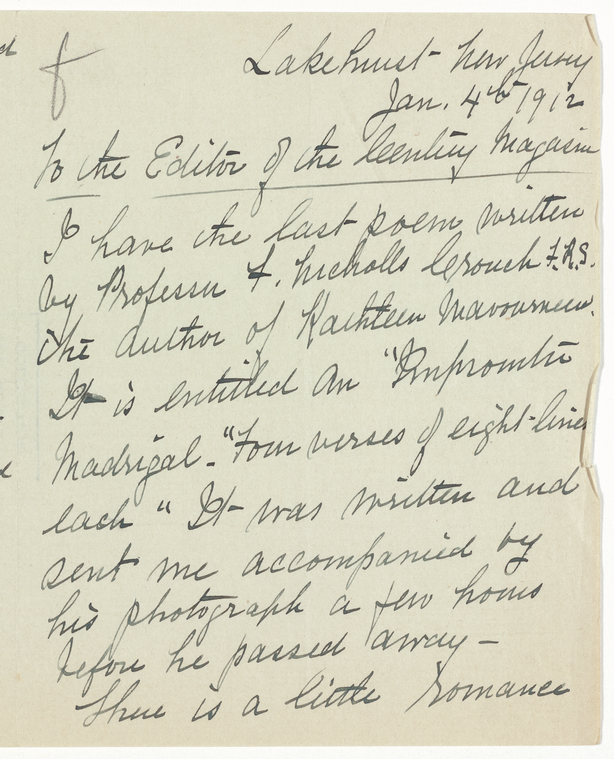 Lakehurst New Jersey
Jan. 4th 1912
To the Editor of the Century Magazine
I have the last poem written
by Professor F. Nicholls Crouch F.R.S.
the author of Kathleen Mavourneen.
It is entitled an "Impromtu
Madrigal - "Four verses of eight-lines
each" It was written and
sent me accompanied by
his photograph a few hours
before he passed away -
There is a little romance